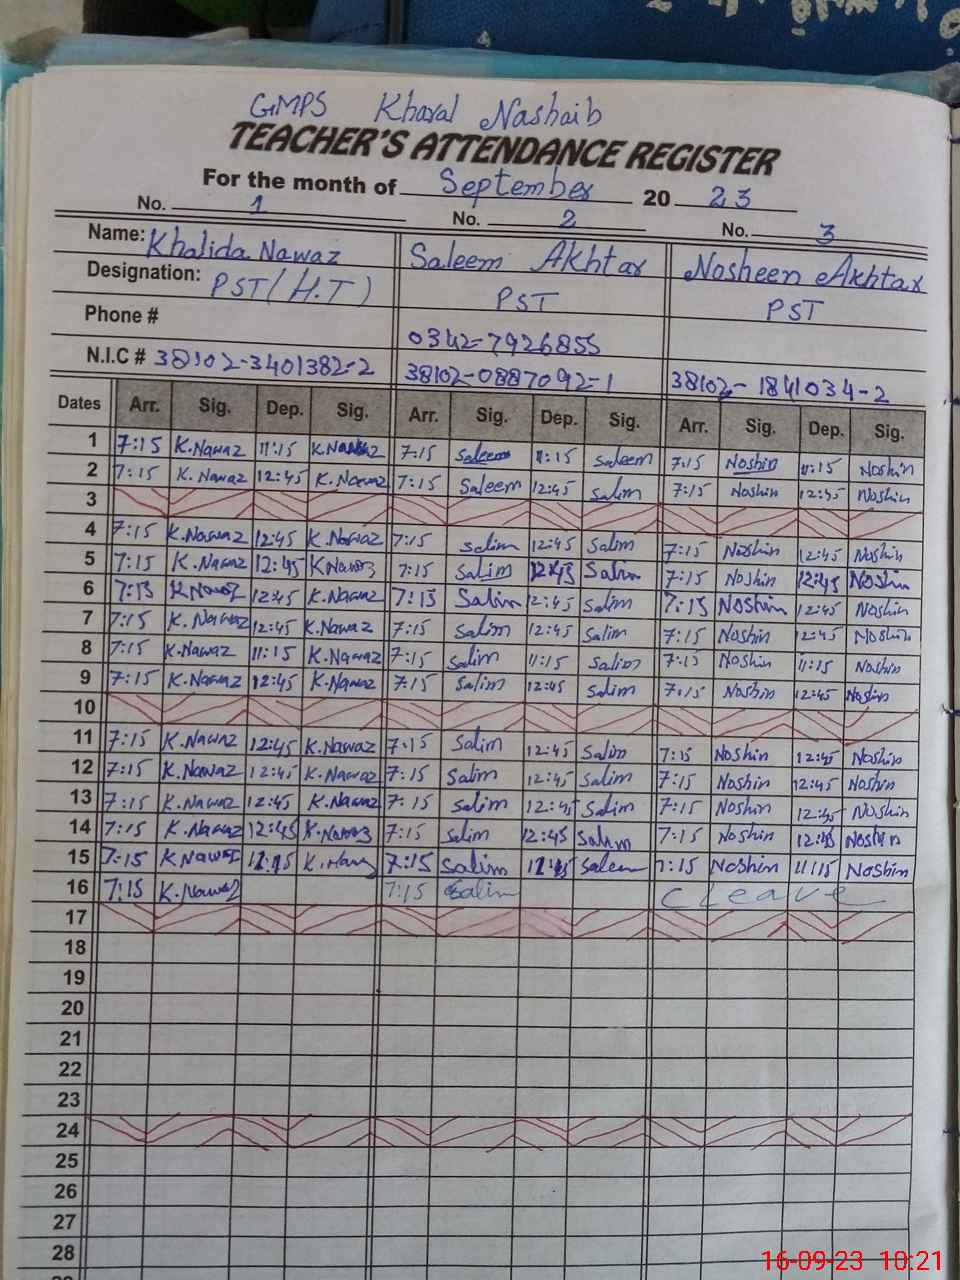 GMPS Kharal Nashaib
TEACHER'S ATTENDANCE REGISTER
For the month of September 20 23
No. 1 No. 2 No. 3
Name: Khalida Nawaz Saleem Akhtar Nosheen Akhtar
Designation: PST (H.T) PST PST
Phone # 0342-7926855
N.I.C # 38102-3401382-2 38102-0887092-1 38102-1841034-2
Dates Arr. Sig. Dep. Sig. Arr. Sig. Dep. Sig. Arr. Sig. Dep. Sig.
1 7:15 K.Nawaz 11:15 K.Nawaz 7:15 Saleem 11:15 Saleem 7:15 Noshin 11:15 Noshin
2 7:15 K.Nawaz 12:45 K.Nawaz 7:15 Saleem 12:45 Salim 7:15 Noshin 12:45 Noshin
3
4 7:15 K.Nawaz 12:45 K.Nawaz 7:15 Salim 12:45 Salim 7:15 Noshin 12:45 Noshin
5 7:15 K.Nawaz 12:45 K.Nawaz 7:15 Salim 12:45 Salim 7:15 Noshin 12:45 Noshin
6 7:15 K.Nawaz 12:45 K.Nawaz 7:15 Salim 12:45 Salim 7:15 Noshin 12:45 Noshin
7 7:15 K.Nawaz 12:45 K.Nawaz 7:15 Salim 12:45 Salim 7:15 Noshin 12:45 Noshin
8 7:15 K.Nawaz 11:15 K.Nawaz 7:15 Salim 11:15 Salim 7:15 Noshin 11:15 Noshin
9 7:15 K.Nawaz 12:45 K.Nawaz 7:15 Salim 12:45 Salim 7:15 Noshin 12:45 Noshin
10
11 7:15 K.Nawaz 12:45 K.Nawaz 7:15 Salim 12:45 Salim 7:15 Noshin 12:45 Noshin
12 7:15 K.Nawaz 12:45 K.Nawaz 7:15 Salim 12:45 Salim 7:15 Noshin 12:45 Noshin
13 7:15 K.Nawaz 12:45 K.Nawaz 7:15 Salim 12:45 Salim 7:15 Noshin 12:45 Noshin
14 7:15 K.Nawaz 12:45 K.Nawaz 7:15 Salim 12:45 Salim 7:15 Noshin 12:45 Noshin
15 7:15 K.Nawaz K. 7:15 Salim Saleem 7:15 Noshin 11:15 Noshin
16 7:15 K.Nawaz 7:15 Salim C leave
17
18
19
20
21
22
23
24
25
26
27
28
16-09-23 10:21